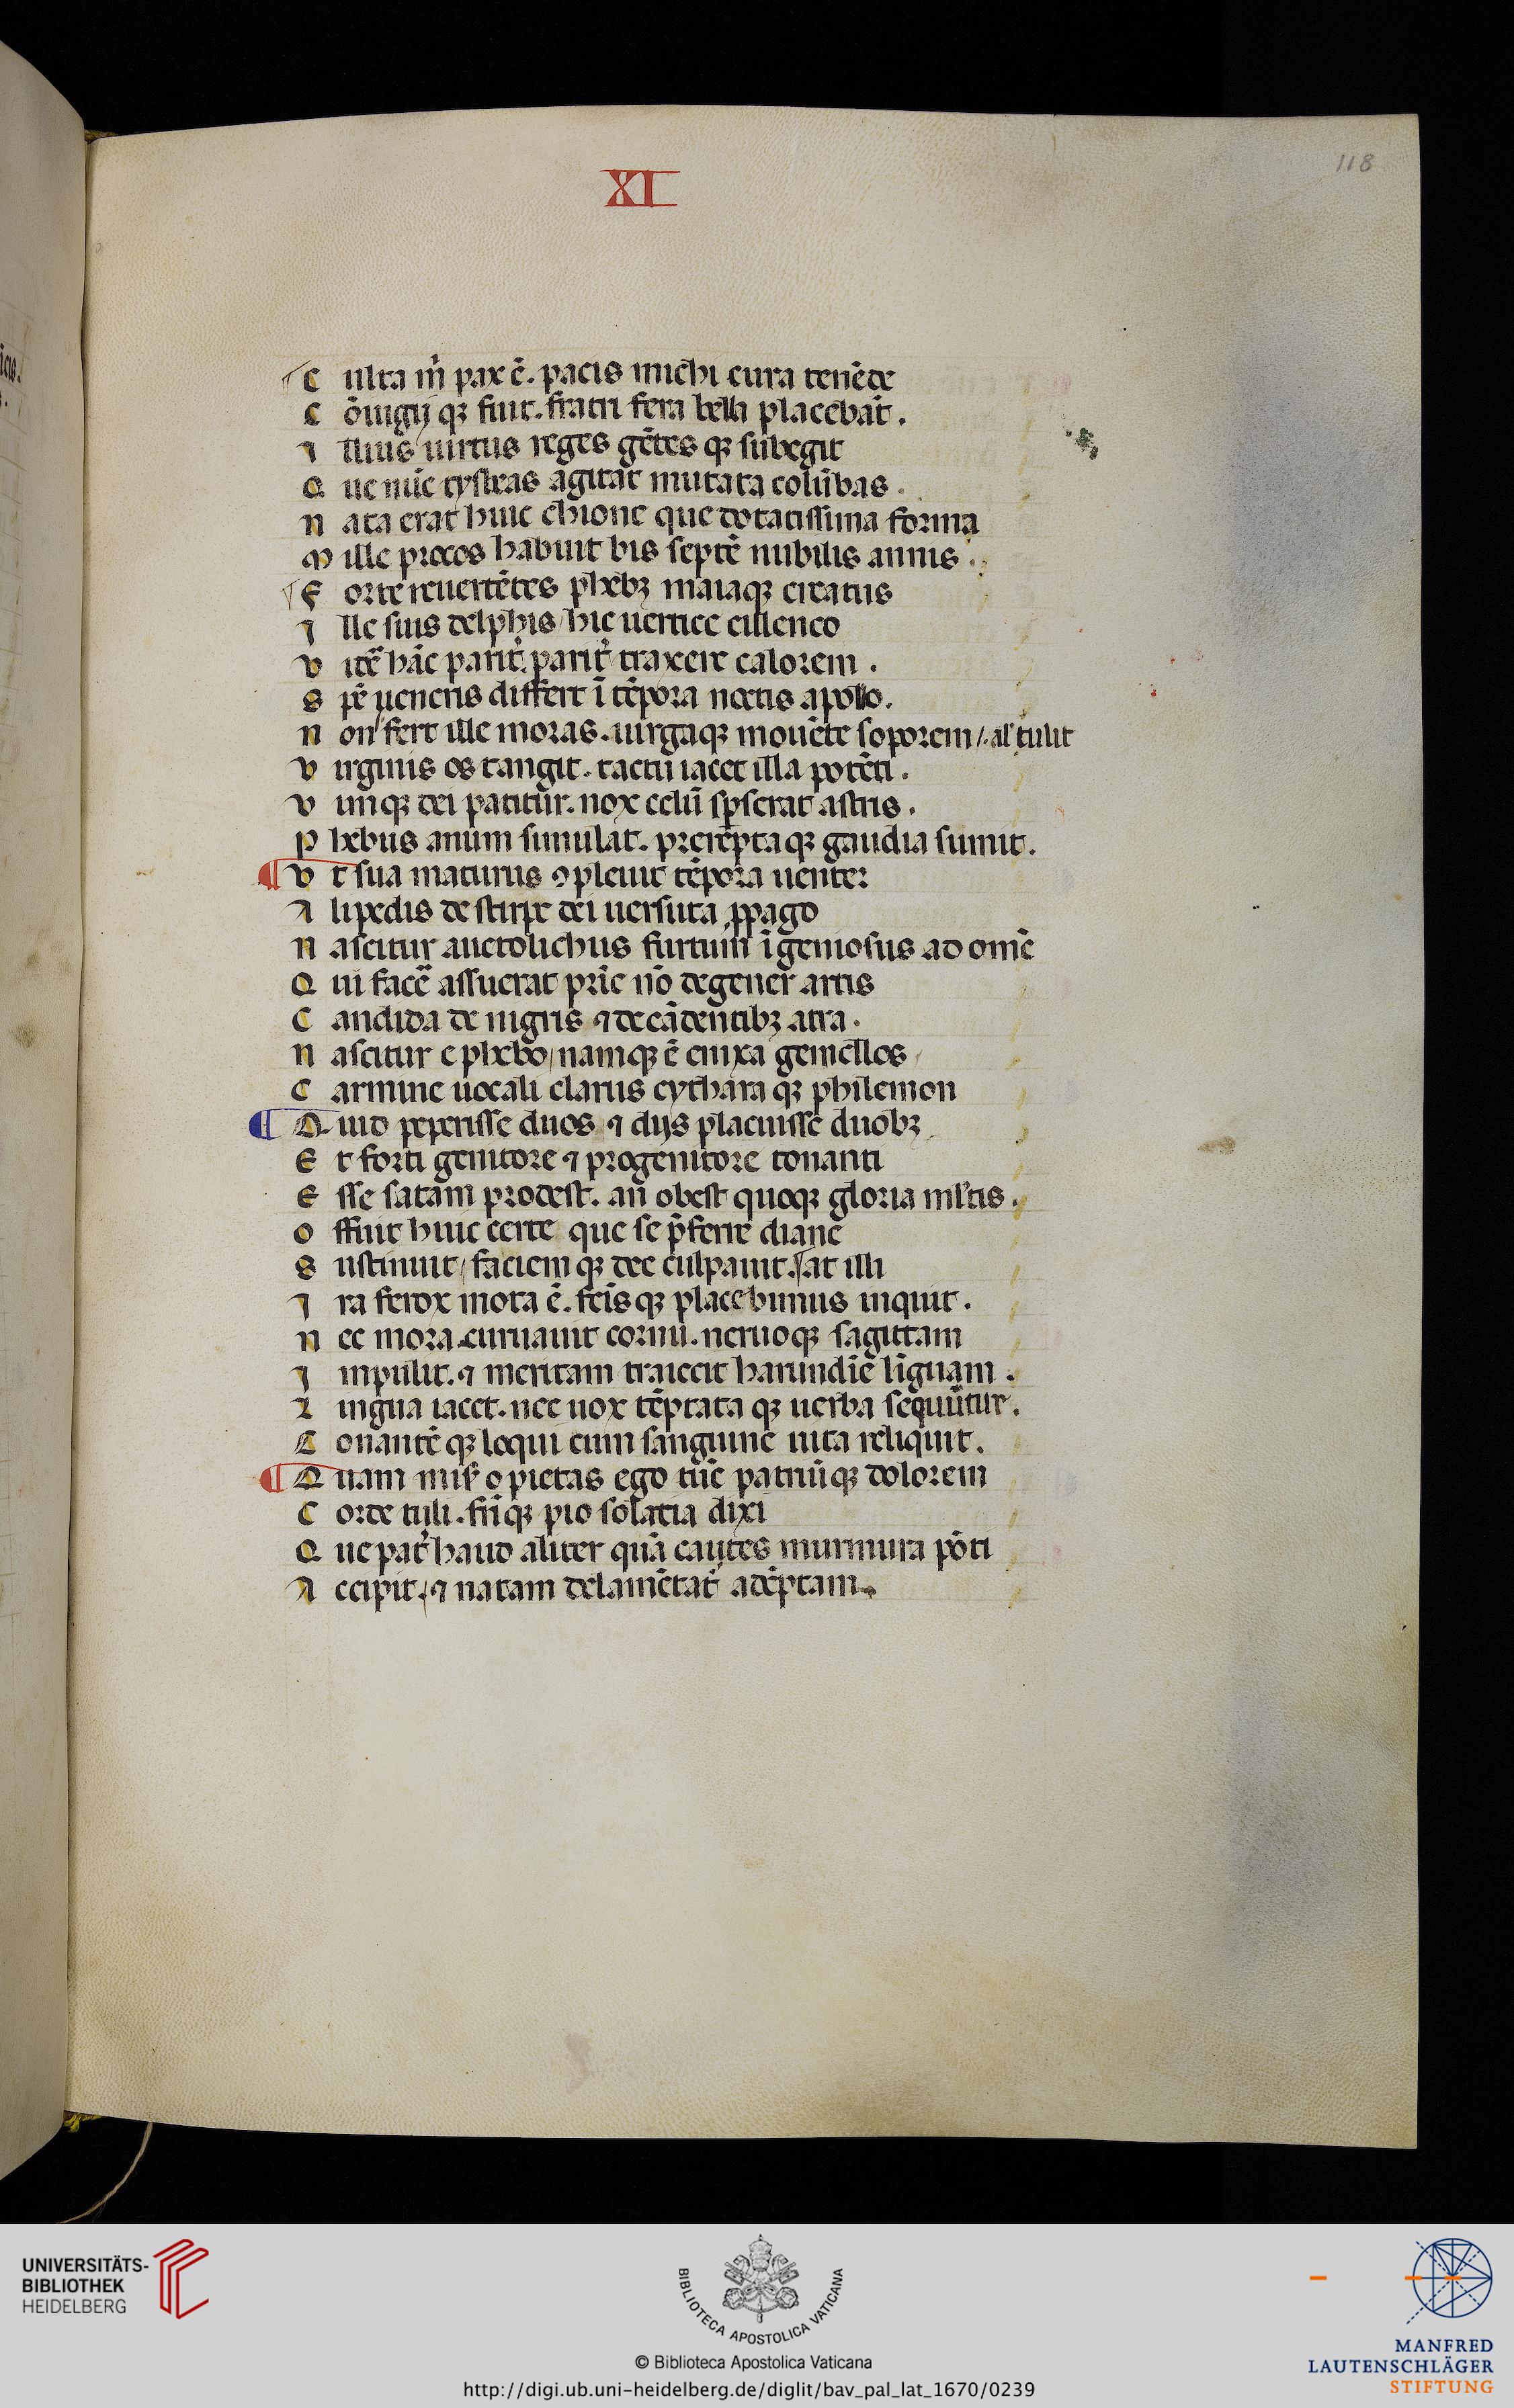 XI
118
C ulta m̄ pax ē. pacis michi cura tenēde
C ōiugijqꝫ fuit. fratri fera bella placebāt.
I llius uirtus reges gētesqꝫ subegit
Q ue nūc tysbeas agitat mutata colūbas.
N ata erat huic chione que dotatissima forma
M ille procos habuit bis septē nubilis annis.
F orte reuertētes phebꝫ maiaqꝫ creatus
I lle suis delphis / hic uertice cilleneo
V idē hāc parit̄. parit̄ traxere calorem.
S pē ueneris differt ī tēpora noctis apollo.
N on fert ille moras. uirgaqꝫ mouēte soporem /. al' tulit
V irginis os tangit. tactu iacet illa potēti.
V imqꝫ dei patitur. nox celū sp̄serat astris.
P hebus anum simulat. prereptaqꝫ gaudia sumit.
V t sua maturus ꝯpleuit tēpora uenter
A lipedis de stirpe dei uersuta ꝓpago
N ascitur auctolichus furtum īgeniosus ad om̄e
Q ui facē assuerat pr̄ie nō degener artis
C andida de nigris ⁊ de cādentibꝫ atra.
N ascitur e phebo / namqꝫ ē enixa gemellos
C armine uocali clarus cytharaqꝫ philemon
Q uid peperisse duos ⁊ dijs placuisse duobꝫ
E t forti genitore ⁊ progenitore tonanti
E sse satam prodest. an obest quoqꝫ gloria ml'tis.
O ffuit huic certe que se p̄ferre diane
S ustinuit / faciemqꝫ dee culpauit. at illi
I ra ferox mota ē. fc̄isqꝫ placebimus inquit.
N ec mora curuauit cornu. neruoqꝫ sagittam
I npulit. ⁊ meritam traiecit harundīe līguam.
L ingua iacet. nec uox tēptataqꝫ uerba sequūtur.
C onantēqꝫ loqui cum sanguine uita reliquit.
Q uam mis̄ o pietas ego tūc patruīqꝫ dolorem
C orde tuli. fr̄iqꝫ pio solatia dixi
Q ue pat̄ haud aliter quā cautes murmura pōti
A ccipit. ⁊ natam delamētat̄ adēptam.
UNIVERSITÄTS-
BIBLIOTHEK
HEIDELBERG
BIBLIOTECA APOSTOLICA VATICANA
© Biblioteca Apostolica Vaticana
http://digi.ub.uni-heidelberg.de/diglit/bav_pal_lat_1670/0239
MANFRED
LAUTENSCHLÄGER
STIFTUNG